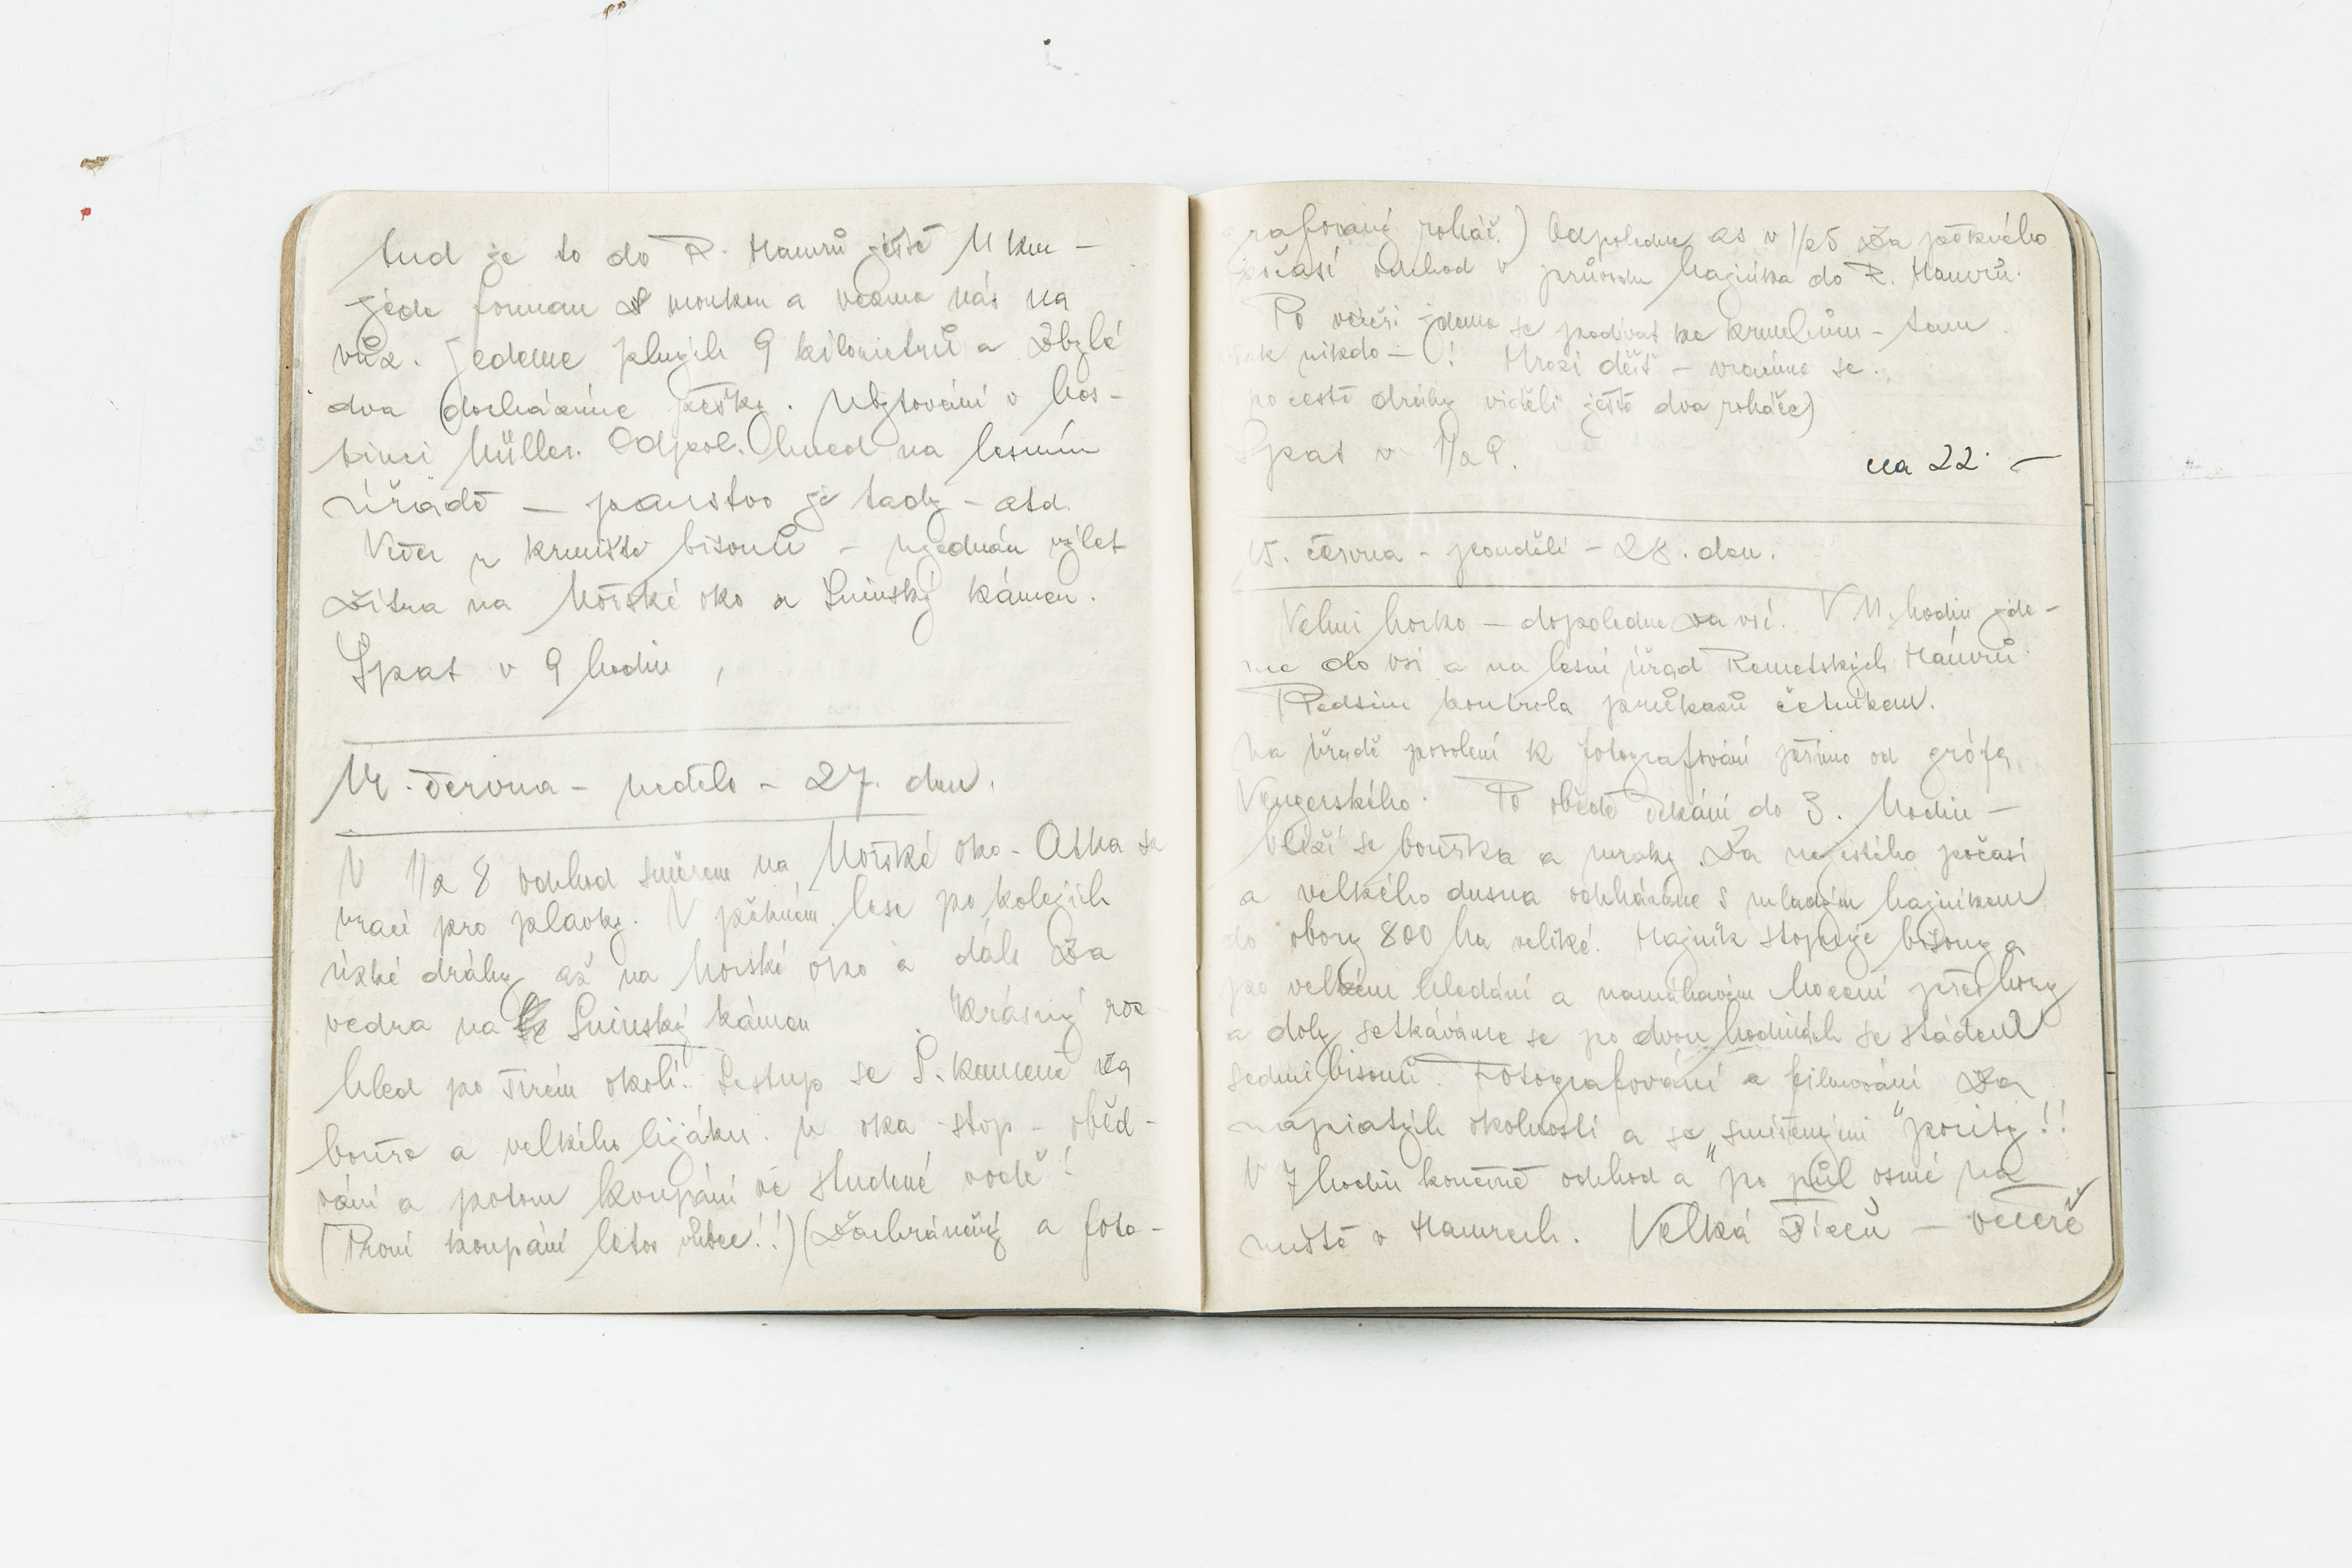 tud je to do R. Hamrů ještě 11 km –
jede forman s moukou a vezme nás na
vůz. Jedeme plných 9 kilometrů a zbylé
dva docházíme pěšky. Ubytování v hos-
tinci Müller. Odpol. hned na lesním
úřadě – panstvo je tady – atd.
Večer u krmiště bisonů – ujednán výlet
zítra na Mořské oko a Sninský kámen.
Spat v 9 hodin
14. června – neděle – 27. den.
V 1/2 8 odchod směrem na Mořské oko – Aťka se
vrací pro plavky. V pěkném lese po kolejích
úzké dráhy až na Mořské oko a dále za
vedra na Sninský kámen krásný roz-
hled po širém okolí. Sestup se S. kamene za
bouře a velkého lijáku. U oka – stop – oběd-
vání a potom koupání ve studené vodě!
(První koupání letos vůbec!!) (Zachráněný a foto-
grafovaný roháč.) Odpoledne as v 1/2 5 za pěkného
počasí odchod v průvodu hajníka do R. Hamrů.
Po večeři jdeme se podívat ke krmelcům – tam
však nikdo – ! Hrozí déšť – vracíme se.
(po cestě dráhy viděli ještě dva roháče)
Spat v 1/2 9.
na 22 –
15. června – pondělí – 28. den.
Velmi horko – dopoledne za vsí. V 11 hodin jde-
me do vsi a na lesní úřad Remetských Hámrů.
Předtím kontrola průkazů četníkem.
Na úřadě povolení k fotografování přímo od grófa
Vengerského. Po obědě čekání do 3. hodin –
blíží se bouřka a mraky. Za nejistého počasí
a velkého dusna odcházíme s mladým hajníkem
do obory 800 ha veliké. Hajník stopuje bisony a
po velkém hledání a namáhavém hození přes hory
a doly setkáváme se po dvou hodinách se stádem
sedmi bisonů. Fotografování a filmování za
napiatých okolností a se „smíšenými" pocity!!
V 7 hodin konečně odchod a po půl osmé na
místě v Hamrech. Velká žízeň – večeře